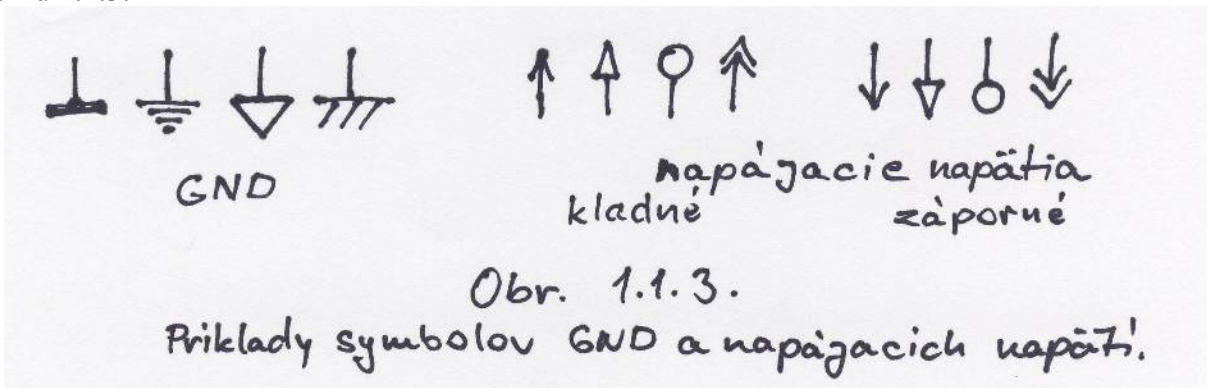 GND
napájacie napätia
kladné záporné
Obr. 1.1.3.
Priklady symbolov GND a napájacich napätí.